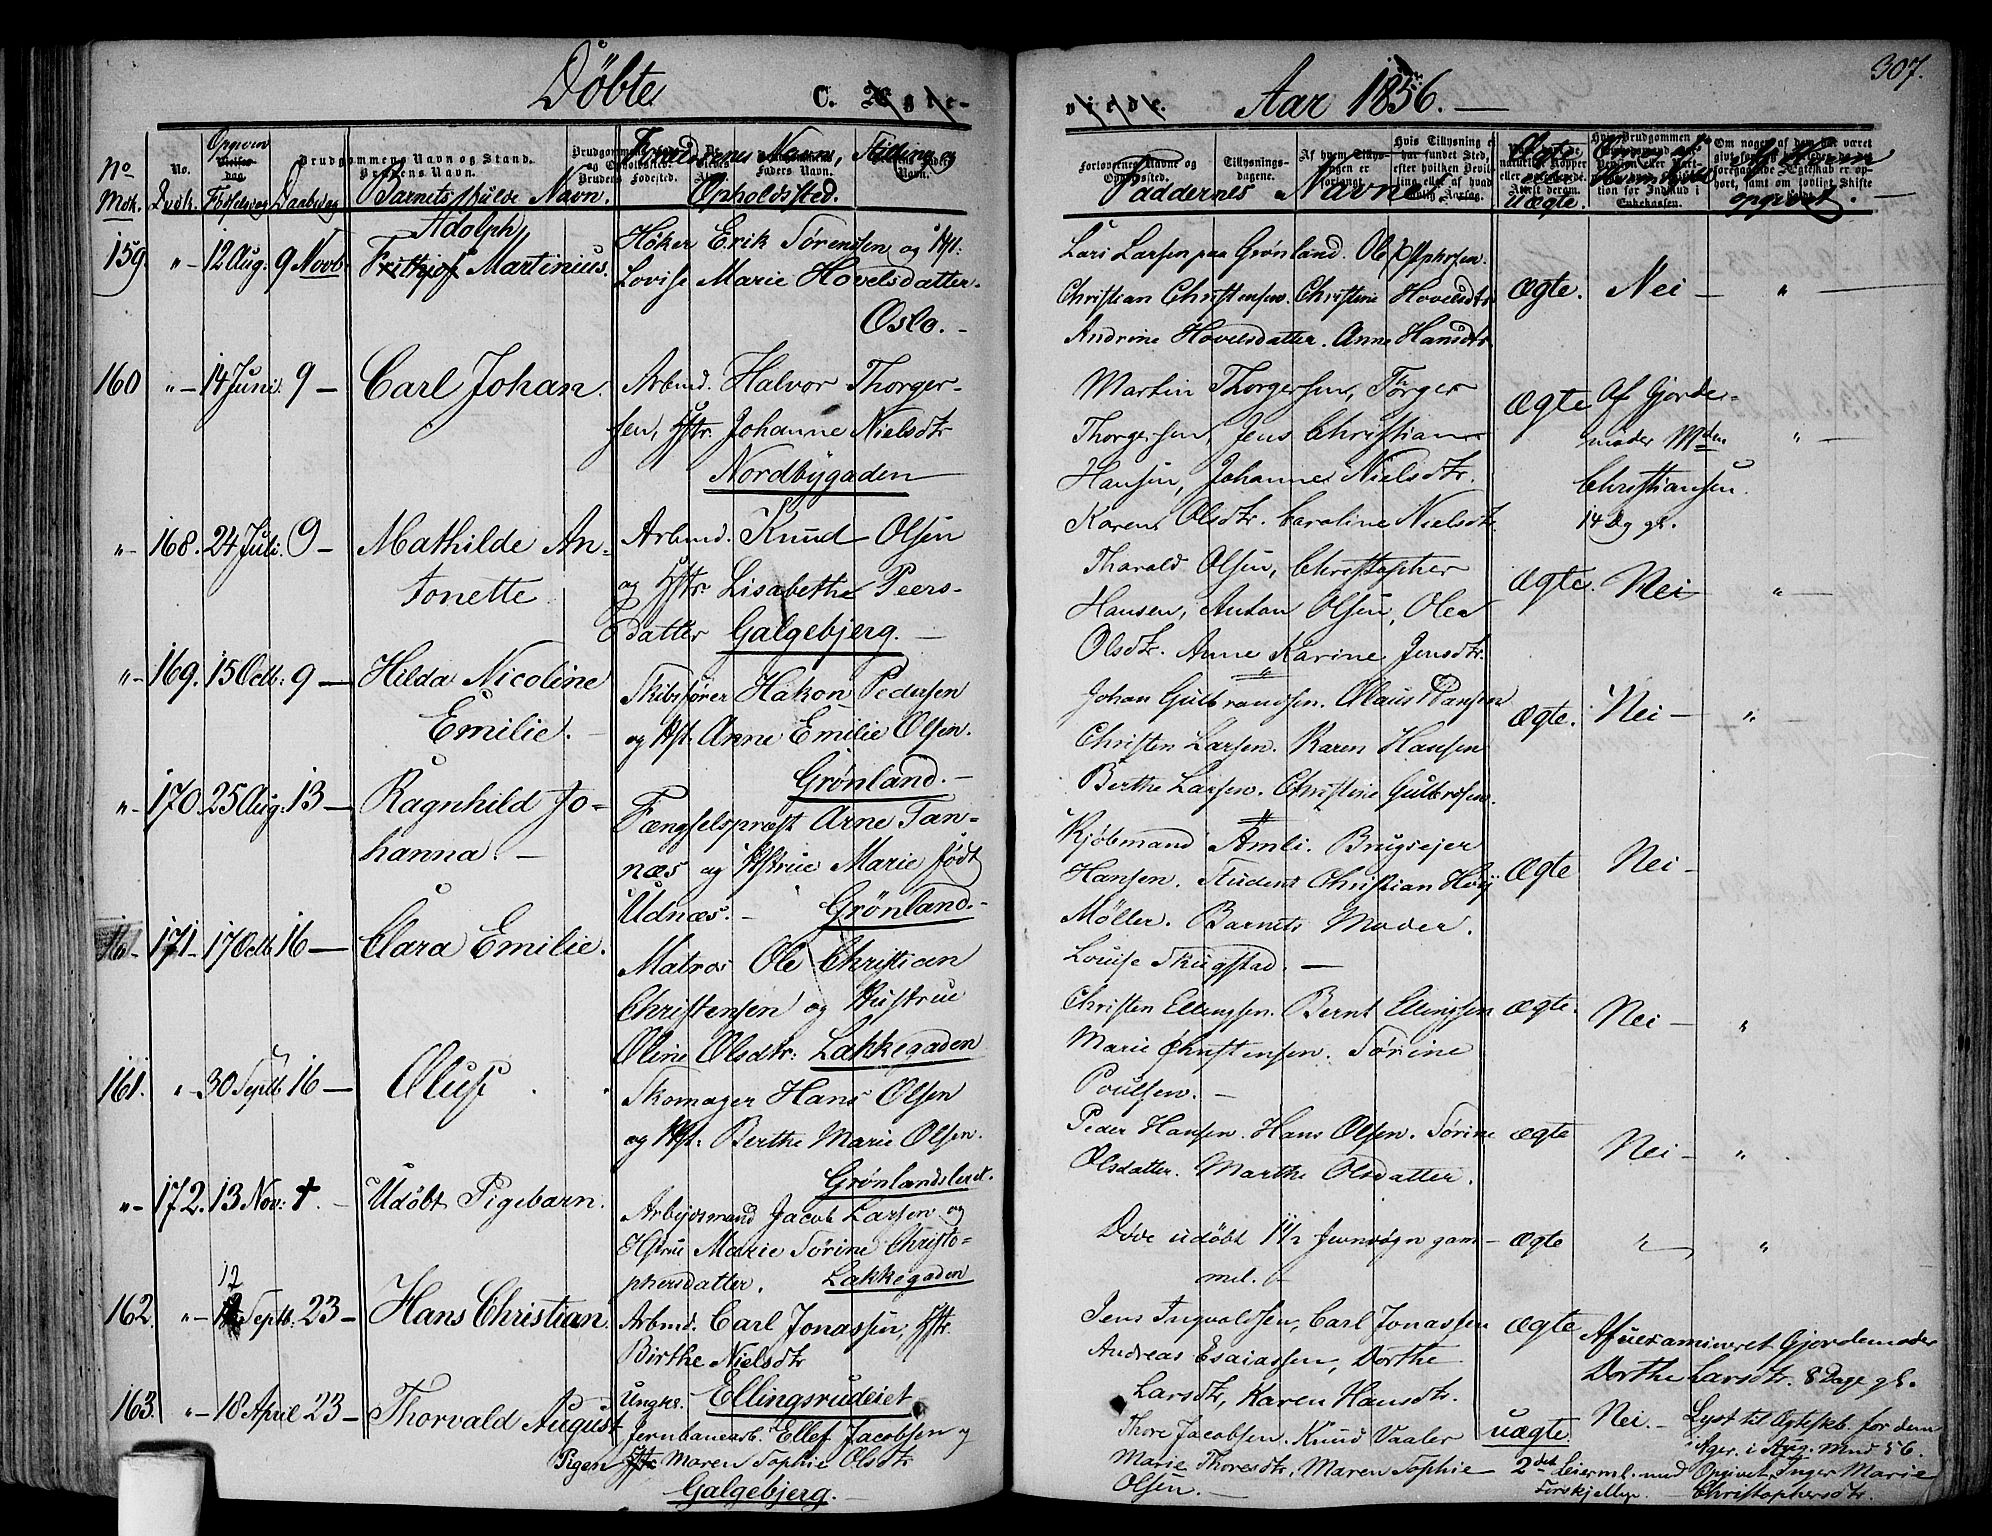 Döbte
C. Aar 1856.
307.
No Msk. No. Qvdk. Opgiven Fødselsdag Daabsdag Barnets fulde Navn. Forældrenes Navn, Stilling og Opholdssted.
Faddernes Navne. Ægte eller Uægte.
159. „ 12 Aug. 9 Novb. Adolph Martinius.
Høker Erik Sørensen og Hst.
Lovise Marie Hovelsdatter.
Oslo.
Lars Larsen paa Grønland.
Christian Christensen. Christine Hovelsdtr
Andrine Hovelsdatter. Anne Hansdtr
Ægte. Nei „
160 „ 14 Juni. 9 Carl Johan.
Arbmd. Halvor Thorger-
sen, Hstr. Johanne Nielsdtr
Nordbygaden
Martin Thorgersen, Thorger
Thorgersen, Jens Christian
Hansen, Johanne Nielsdtr.
Karen Olsdtr. Caroline Nielsdtr.
Ægte Af Gjorde-
moder Mden
Christiansen.
14 Dg gl.
„
„ 168. 24 Juli. 9 Mathilde An-
tonette
Arbmd. Knud Olsen
og Hstr. Lisabethe Peers-
datter Galgebjerg.
Tharald Olsen, Christopher
Hansen, Anton Olsen, Olea
Olsdtr. Anne Karine Jensdtr.
Ægte. Nei „
„ 169. 15 Octb. 9 Hilda Nicoline
Emilie.
Skibsfører Hakon Pedersen
og Hst. Anne Emilie Olsen.
Grønland.
Johan Gulbrandsen. Olaus Hansen
Christen Larsen. Karen Hansen
Berthe Larsen. Christine Gulbrdsen.
Ægte. Nei „
„ 170. 25 Aug. 13 Ragnhild Jo-
hanna.
Fængselspræst Arne Tan-
næs og Hustrue Marie født
Udnæs. Grønland.
Kjöbmand Amli. Brugseier
Hansen. Student Christian Høij
Møller. Barnets Moder.
Louise Skugstad.
Ægte Nei
171 17 Octb 16 Clara Emilie.
Matros Ole Christian
Christensen og Hustrue
Oline Olsdtr: Lakkegaden
Christen Ellingsen. Bernt Ellingsen
Marie Christensen. Sørine
Poulsen.
Ægte. Nei „
161. „ 30 Septb 16 Oluf
Skomager Hans Olsen
og Hst. Berthe Marie Olsen.
Grønlandsleret.
Peder Hansen. Hans Olsen. Sørine
Olsdatter. Marthe Olsdatter.
Ægte Nei „
„ 172. 13 Nov: † Udøbt Pigebarn.
Arbejdsmand Jacob Larsen og
Hstrue Marie Sörine Christo-
phersdatter. Lakkegaden
Døde udöbt 1 1/2 gam-
mel.
Ægte „ „
162. „ 12 Septb. 23 Hans Christian
Arbmd. Carl Jonassen, Hstr.
Birthe Nielsdtr
Ellingsrudeiet
Jens Ingvaldsen, Carl Jonassen
Andreas Esaiassen, Dorthe
Larsdtr, Karen Hansdtr.
Ægte Af uexamineret Gjordemoder
Dorthe Larsdtr. 8 Dage gl.
163. „ 18 April 23 Thorvald August
Ungks.
Jernbanearb. Ellef Jacobsen og
Pigen Maren Sophie Olsdtr
Galgebjerg.
Thore Jacobsen. Knud Vaaler
Marie Thoresdtr, Maren Sophie
Olsen.
uægte 2det Leierml. med
Forskjellige.
Nei. Lyst til Ægteskb. for dem
i Ager. i Aug. Mnd 56.
Opgivet Inger Marie
Christophersdtr.